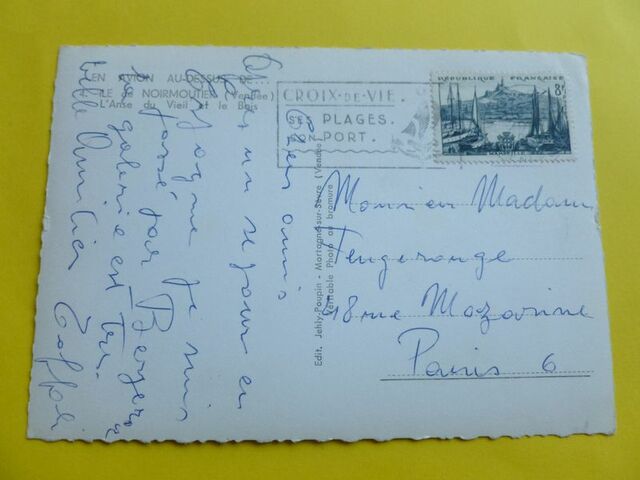 EN AVION AU-DESSUS DE...
ILE de NOIRMOUTIER (Vendée)
L'Anse du Vieil et le Bois
CROIX-DE-VIE.
SES PLAGES.
SON PORT.
RÉPUBLIQUE FRANÇAISE
8F
MARSEILLE
Edit. Jehly-Poupin - Mortagne-sur-Sèvre (Vendée)
Véritable Photo au bromure
Chers amis
Après un séjour en
je suis
passé par
la galerie est
Belle Amitiés
Monsieur Madame
Fengerange
48 rue Mazarine
Paris 6